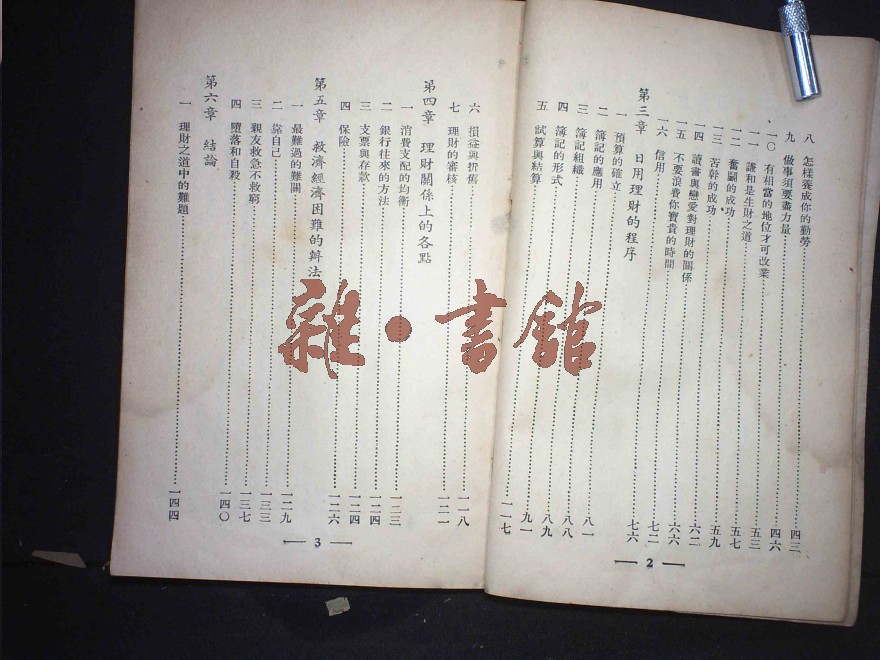 八 怎樣養成你的勤勞……四三
九 做事須要盡力量……四六
一〇 有相當的地位才可改業……五三
一一 謙和是生財之道……五七
一二 奮鬪的成功……五九
一三 苦幹的成功……六二
一四 讀書與戀愛對理財的關係……六六
一五 不要浪費你寶貴的時間……七二
一六 信用……七六
第三章 日用理財的程序
一 預算的確立……八一
二 簿記的應用……八八
三 簿記組織……八九
四 簿記的形式……九一
五 試算與結算……一一七
— 2 —
六 損益與折舊……一一八
七 理財的審核……一二一
第四章 理財關係上的各點
一 消費支配的均衡……一二三
二 銀行往來的方法……一二四
三 支票與存款……一二四
四 保險……一二六
第五章 救濟經濟困難的辦法
一 最難過的難關……一二九
二 靠自己……一三三
三 親友救急不救窮……一三七
四 墮落和自殺……一四〇
第六章 結論
一 理財之道中的難題……一四四
— 3 —
雜·書館